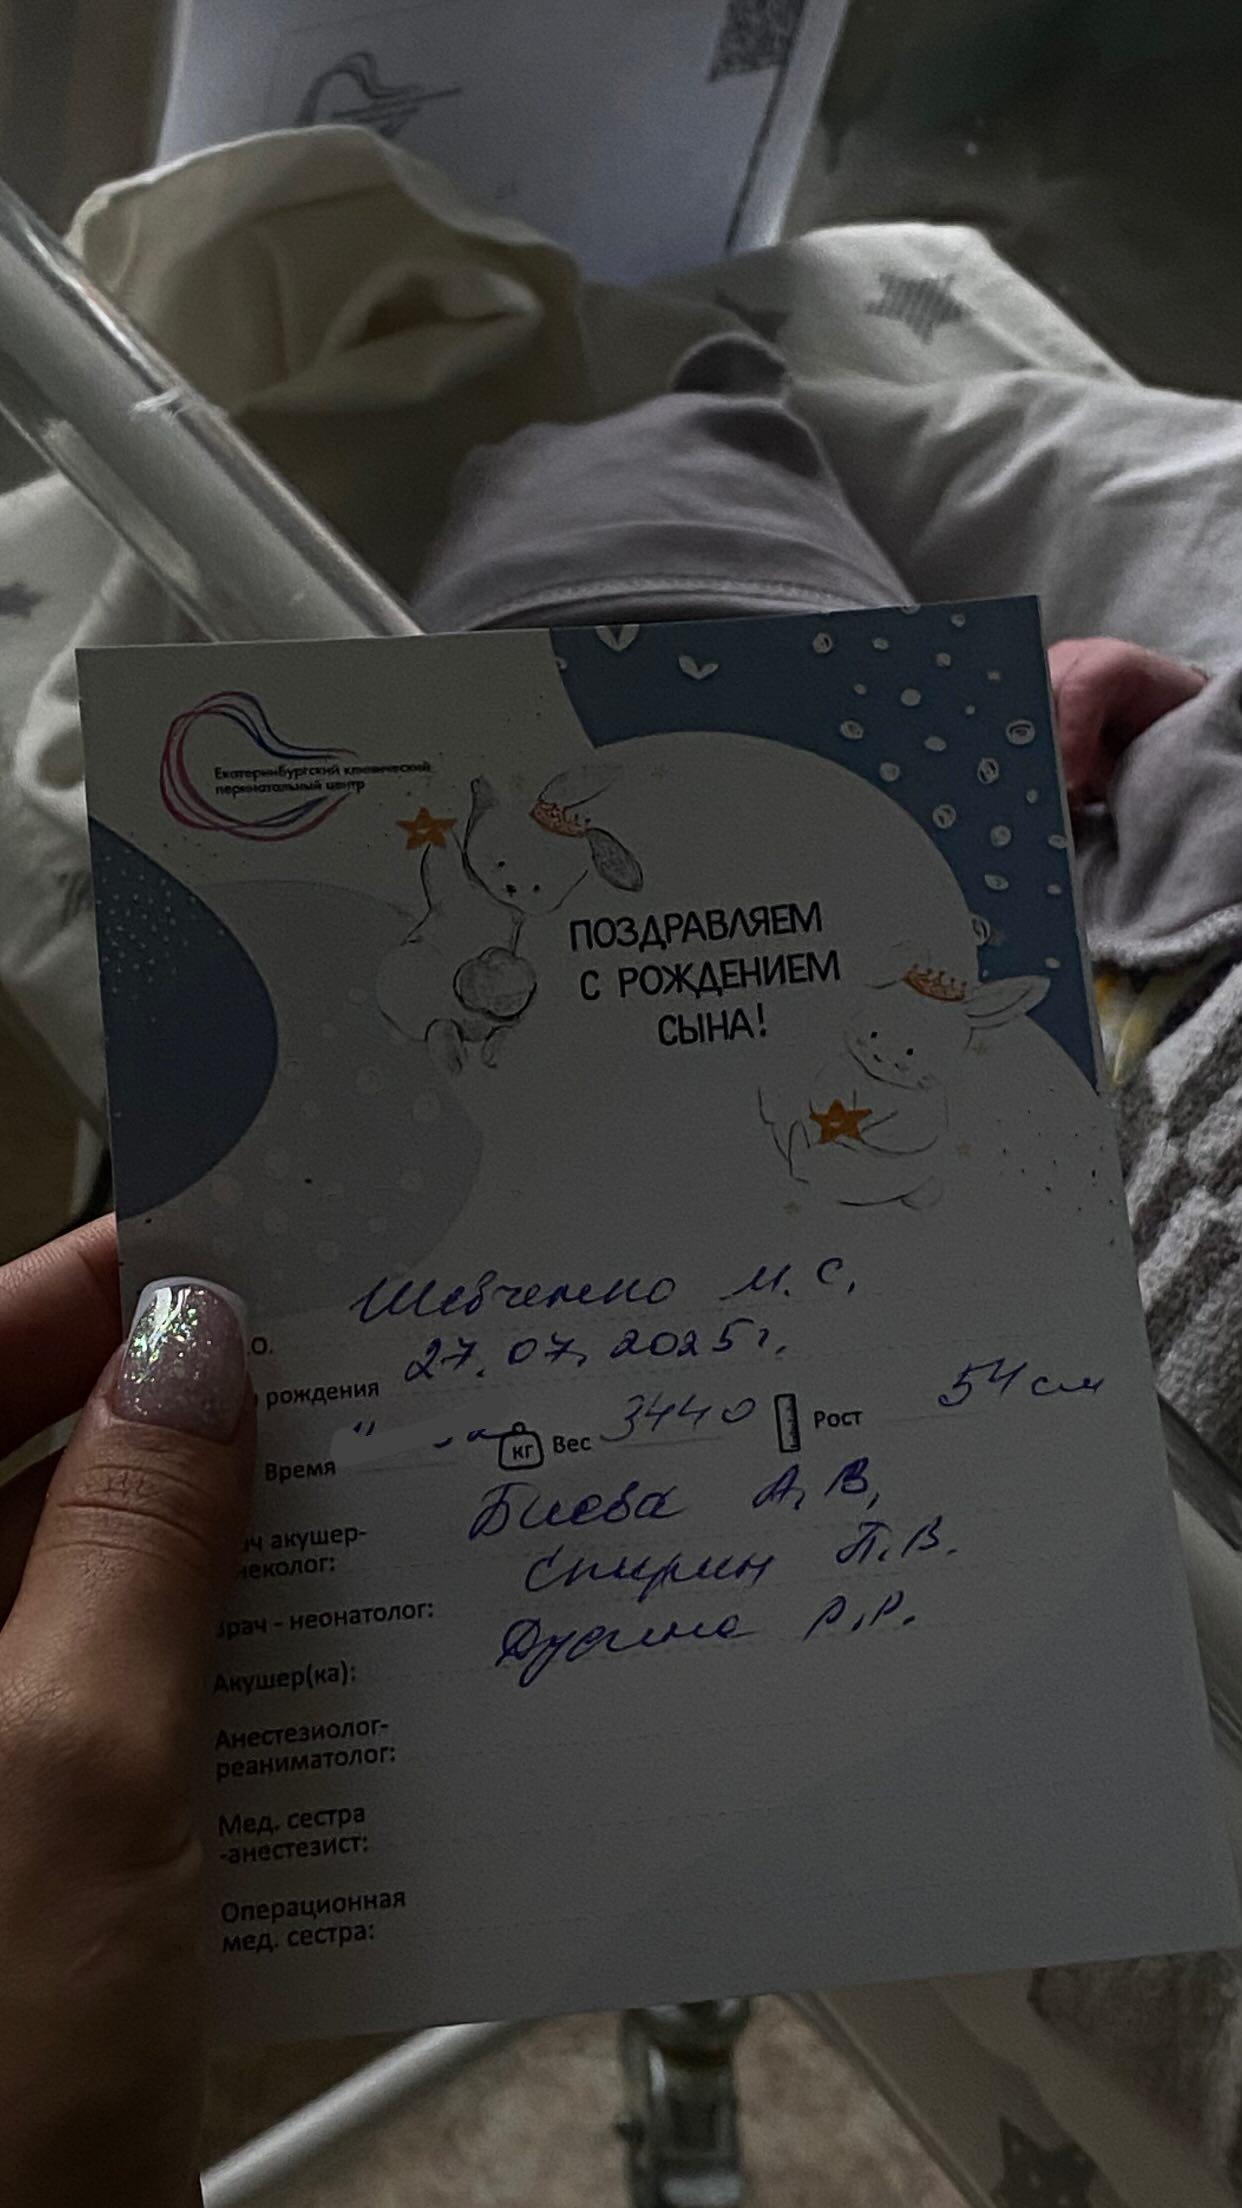 Екатеринбургский клинический
перинатальный центр
ПОЗДРАВЛЯЕМ
С РОЖДЕНИЕМ
СЫНА!
Шевченко М. С.
.О.
27.07.2025г.
рождения
Время
кг Вес 3440 Рост 54 см
акушер-
Биева А. В.
неколог:
Спирин П. В.
Врач - неонатолог:
Р. Р.
Акушер(ка):
Анестезиолог-
реаниматолог:
Мед. сестра
-анестезист:
Операционная
мед. сестра: